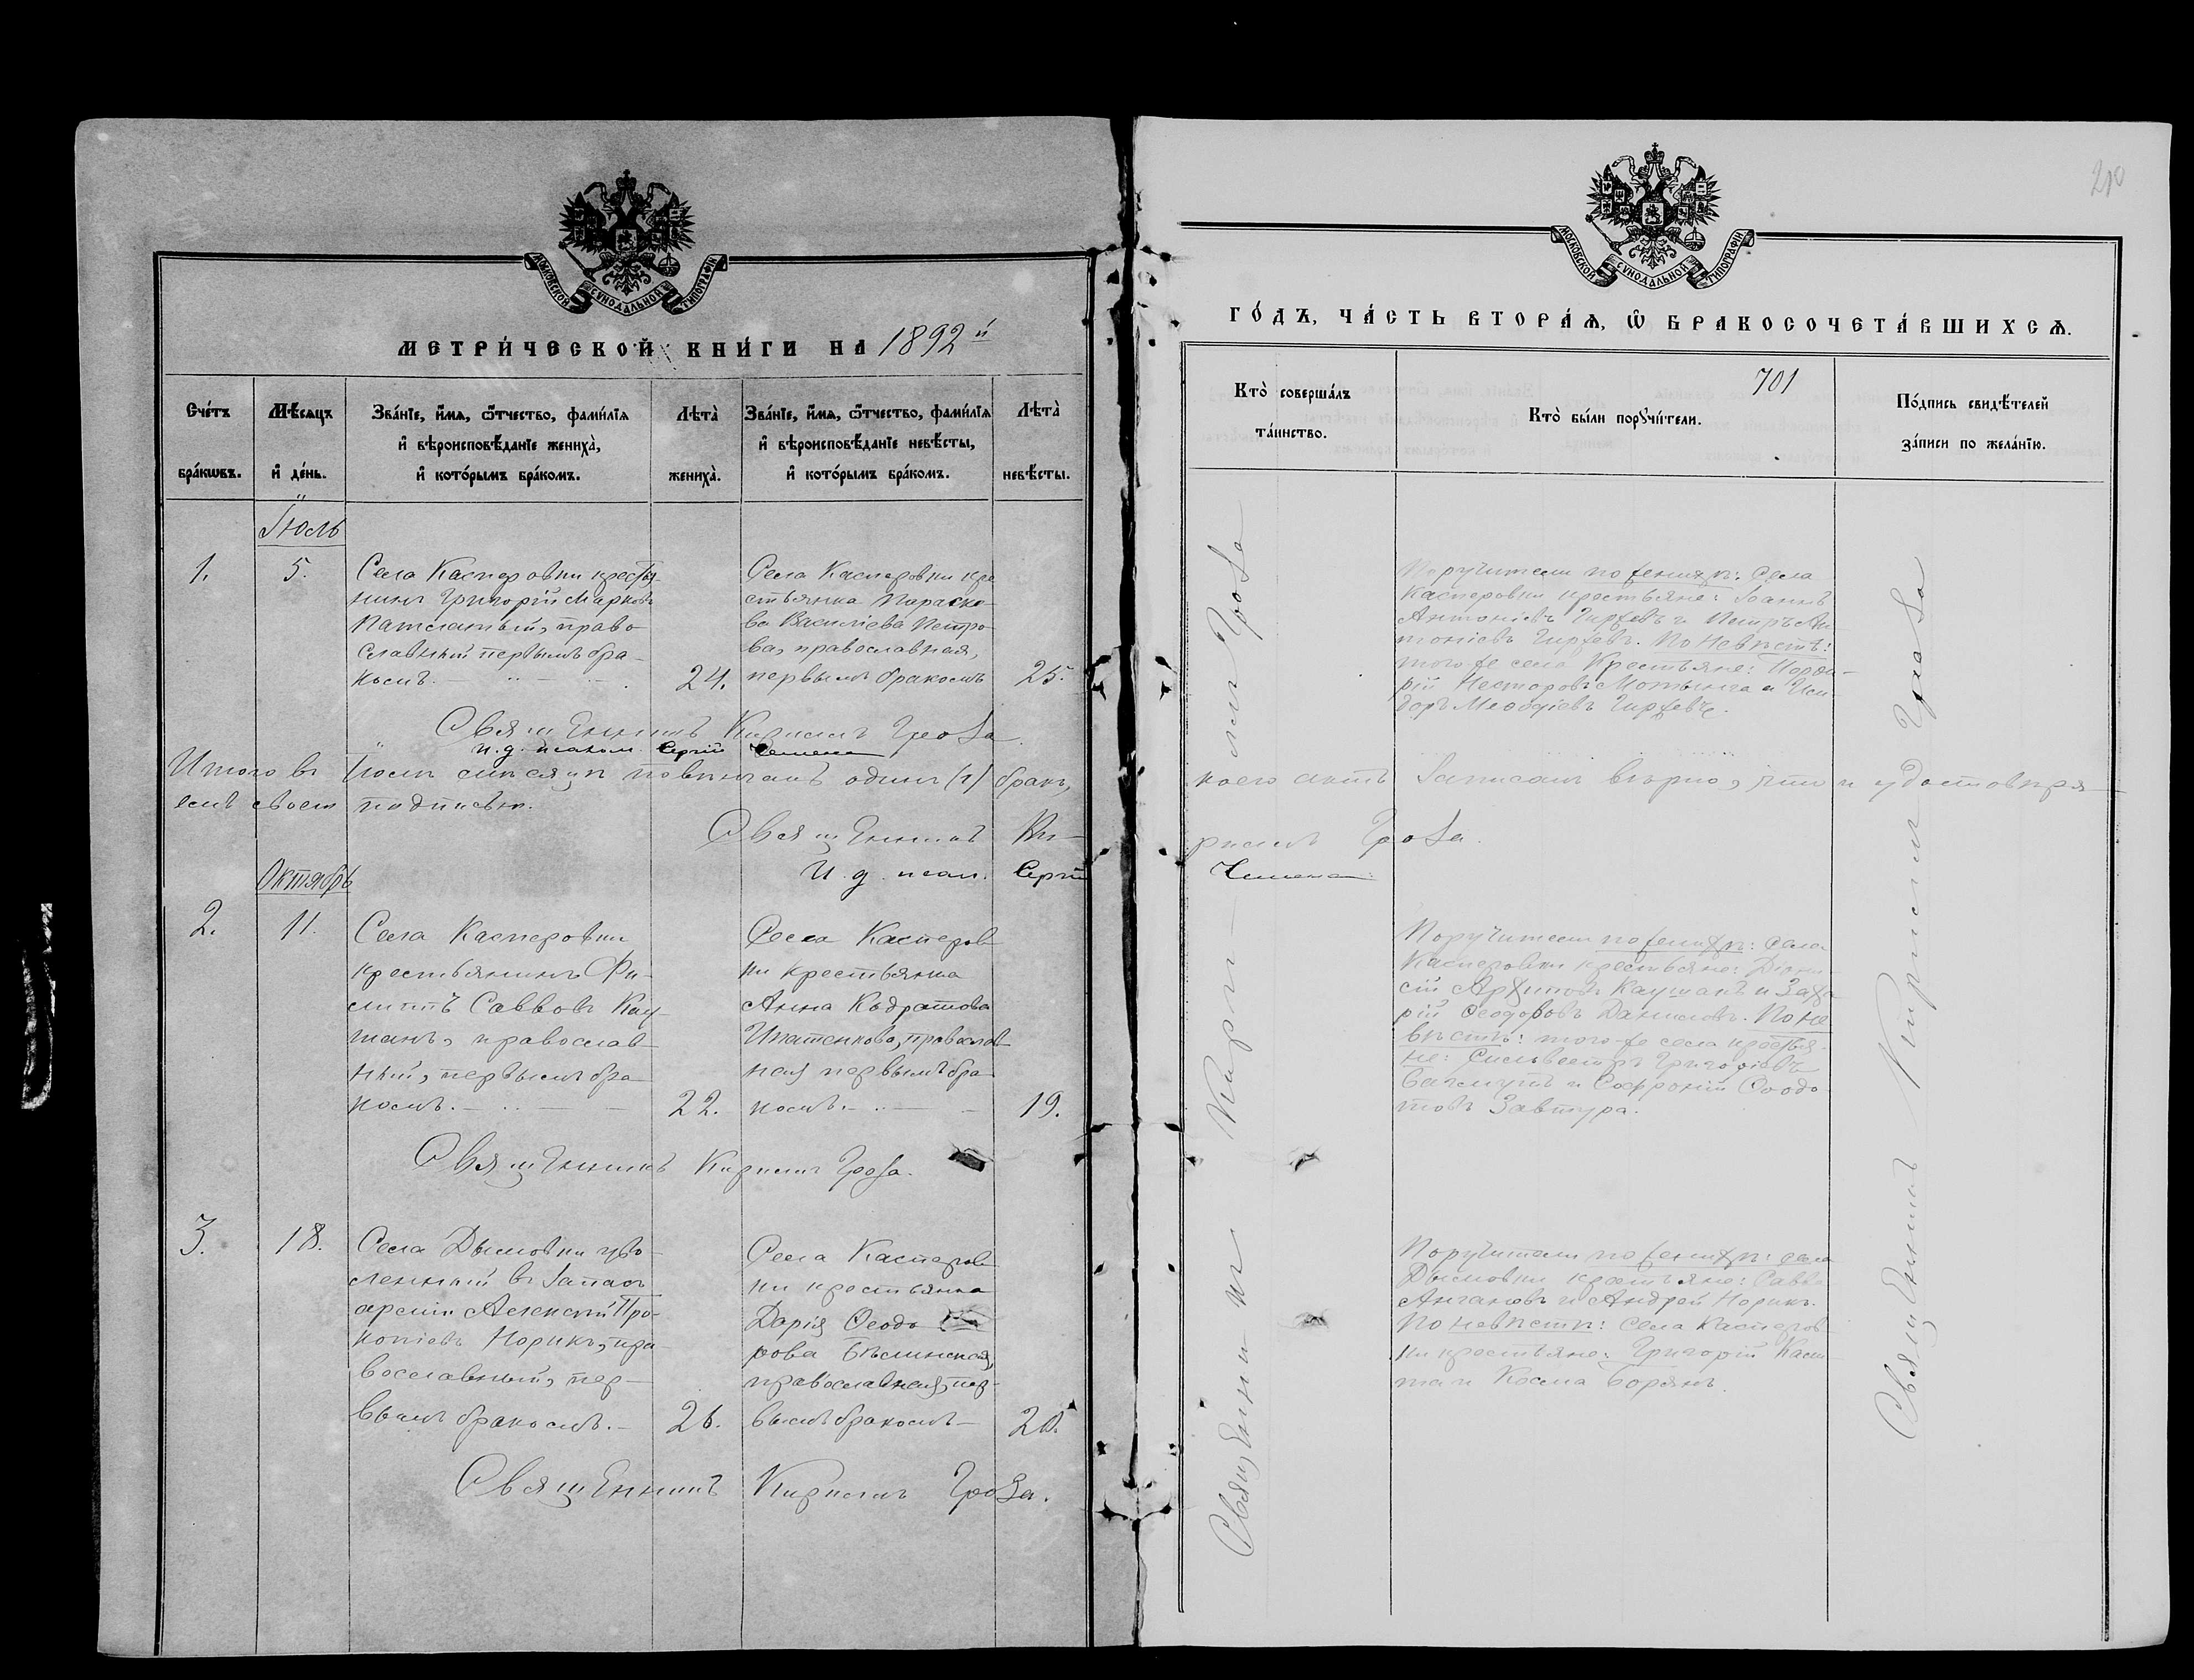 210
МОСКОВСКОЙ СУНОДАЛЬНОЙ ТИПОГРАФІИ
МЕТРИ́ЧЕСКОЙ КНИ́ГИ НА 1892 й
Счéтъ бра́кѡвъ.
Мѣ́сяцъ и҆ де́нь.
Зва́нїе, и҆́мѧ, ѻ҆́тчество, фами́лїѧ и҆ вѣроисповѣ́данїе жениха̀, и҆ кото́рымъ бра́комъ.
Лѣта̀ жениха̀.
Зва́нїе, и҆́мѧ, ѻ҆́тчество, фами́лїѧ и҆ вѣроисповѣ́данїе невѣ́сты, и҆ кото́рымъ бра́комъ.
Лѣта̀ невѣ́сты.
Іюль
1.
5.
Села Касперовки крестья-
нинъ Григорій Марковъ
право-
славный первымъ бра-
комъ.
24.
Села Касперовки кре
стьянка Параске-
ва Василіева Петро-
ва, православная,
первымъ бракомъ
25.
Священникъ Кириллъ Гроза.
И. д. псалом. Сергій
Итого въ Іюлѣ мѣсяцѣ повѣнчанъ одинъ (1) бракъ,
емъ своею подписью.
Священникъ Ки-
И. д. псал. Сергій
Октябрь
2.
11.
Села Касперовки
крестьянинъ Фи-
липпъ Саввовъ Кау-
шанъ, православ-
ный, первымъ бра
комъ.
22.
Села Касперов-
ки крестьянка
Анна Кодратова
Игнатенкова, православ-
ная первымъ бра
комъ.
19.
Священникъ Кириллъ Гроза.
3.
18.
Села Дымовки уво-
ленный въ запасъ
арміи Алексѣй Про-
копіевъ Норикъ, пра-
вославный, пер-
вымъ бракомъ.
26.
Села Касперов-
ки крестьянка
Дарія Ѳеодо
рова Бѣлинская,
православная, пер-
вымъ бракомъ
20.
Священникъ Кириллъ Гроза.
ГО́ДЪ, ЧА́СТЬ ВТОРА́Ѧ, Ѡ҆ БРАКОСОЧЕТА́ВШИХСѦ.
701
Кто̀ соверша́лъ та́инство.
Кто̀ бы́ли порꙋчи́тели.
По́дпись свидѣ́телей за́писи по жела́нїю.
Поручители по женихѣ: Села
Касперовки крестьяне: Іоаннъ
Антоніевъ Гиржевъ и Петръ Ан
тоніевъ Гиржевъ. По невѣстѣ:
того же села Крестьяне: Порфи-
рій Несторовъ Мотынга и Иси
доръ Меѳодіевъ Гиржевъ.
коего актъ записанъ вѣрно, что и удостовѣря-
риллъ Гроза.
Поручители по женихѣ: села
Касперовки крестьяне: Діони-
сій Архиповъ Каушанъ и Заха
рій Ѳеодоровъ Даниловъ. По не
вѣстѣ: того-же села крестья-
не: Сильвестръ Григоріевъ
и Софроній Ѳеодо
товъ Завтура.
Поручители по женихѣ: села
Дымовки крестьяне: Савва
и Андрей Норикъ.
По невѣстѣ: села Касперов-
ки крестьяне: Григорій
и Косма Борянъ.
Священникъ Кириллъ Гроза
Священникъ Кириллъ Гроза